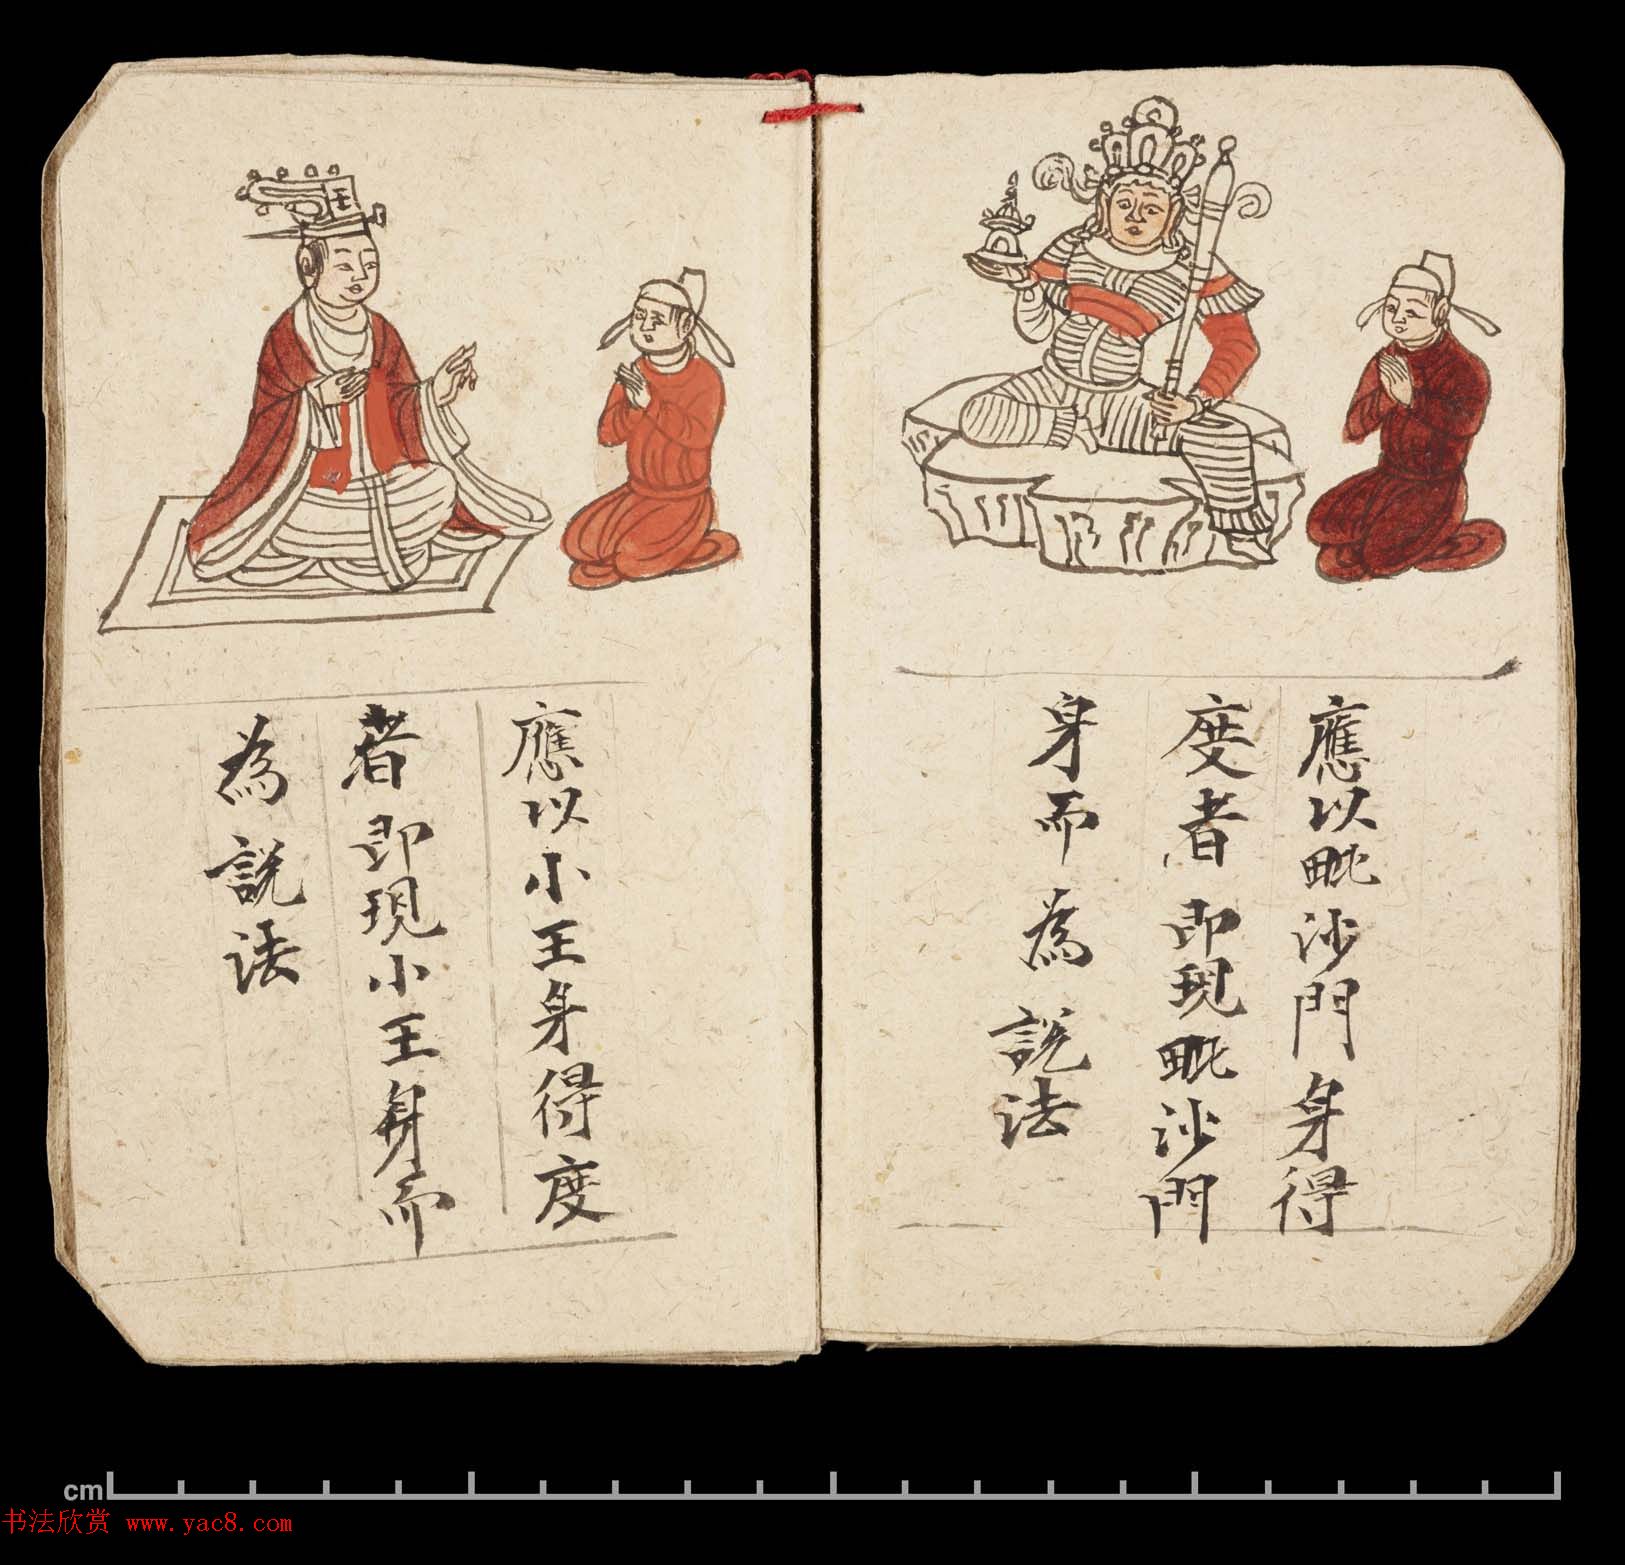 應以毗沙門身得
度者即現毗沙門
身而為說法
應以小王身得度
者即現小王身而
為說法
王
cm
书法欣赏 www.yac8.com